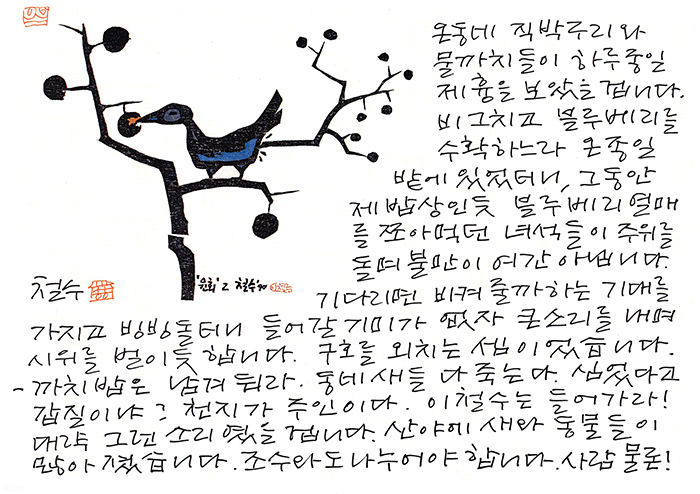 온동네 직박구리와
물까치들이 하루종일
제 흉을 보았을겁니다.
비그치고 블루베리를
수확하느라 온종일
밭에 있었더니, 그동안
제밥상인듯 블루베리열매
를 쪼아먹던 녀석들이 주위를
돌며 불만이 여간 아닙니다.
기다리면 비켜줄까하는 기대를
가지고 빙빙돌더니 들어갈기미가 없자 큰소리를 내며
시위를 벌이듯 합니다. 구호를 외치는 셈이었습니다.
- 까치밥은 남겨둬라. 동네새들 다 죽는다. 심었다고
갑질이냐? 천지가 주인이다. 이철수는 들어가라!
대략 그런 소리였을겁니다. 산야에 새와 동물들이
많아졌습니다. 조수와도 나누어야 합니다. 사람 물론!
철수
철수